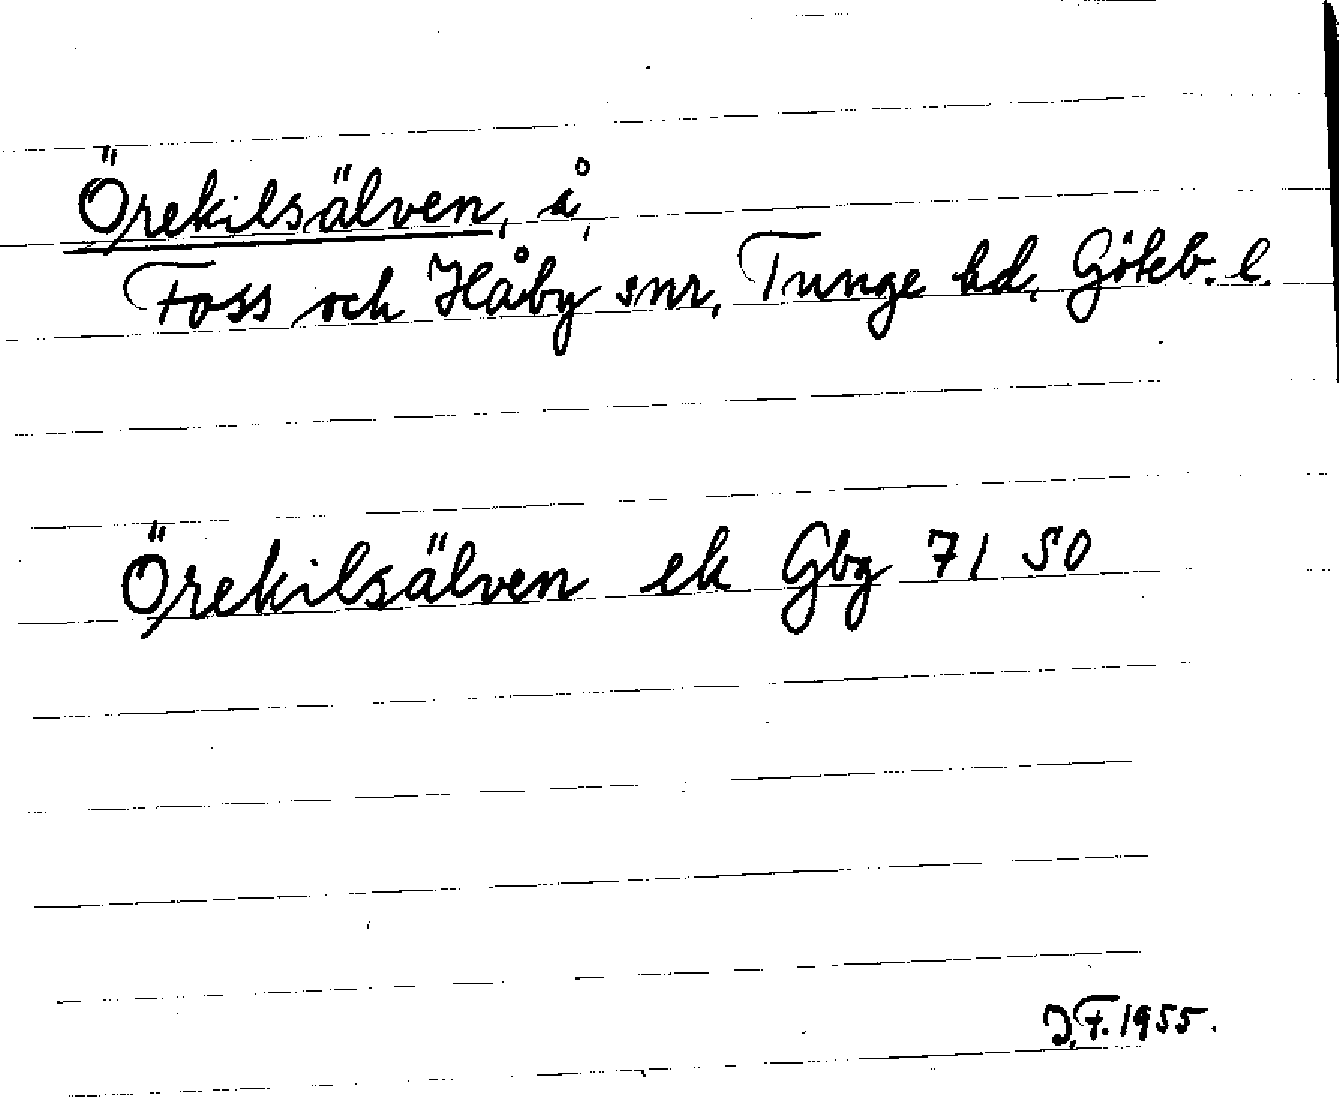 Örekilsälven, å,
Foss och Håby snr, Tunge hd, Göteb. l.
Örekilsälven ek Gbg 71 SO
J.F. 1955.